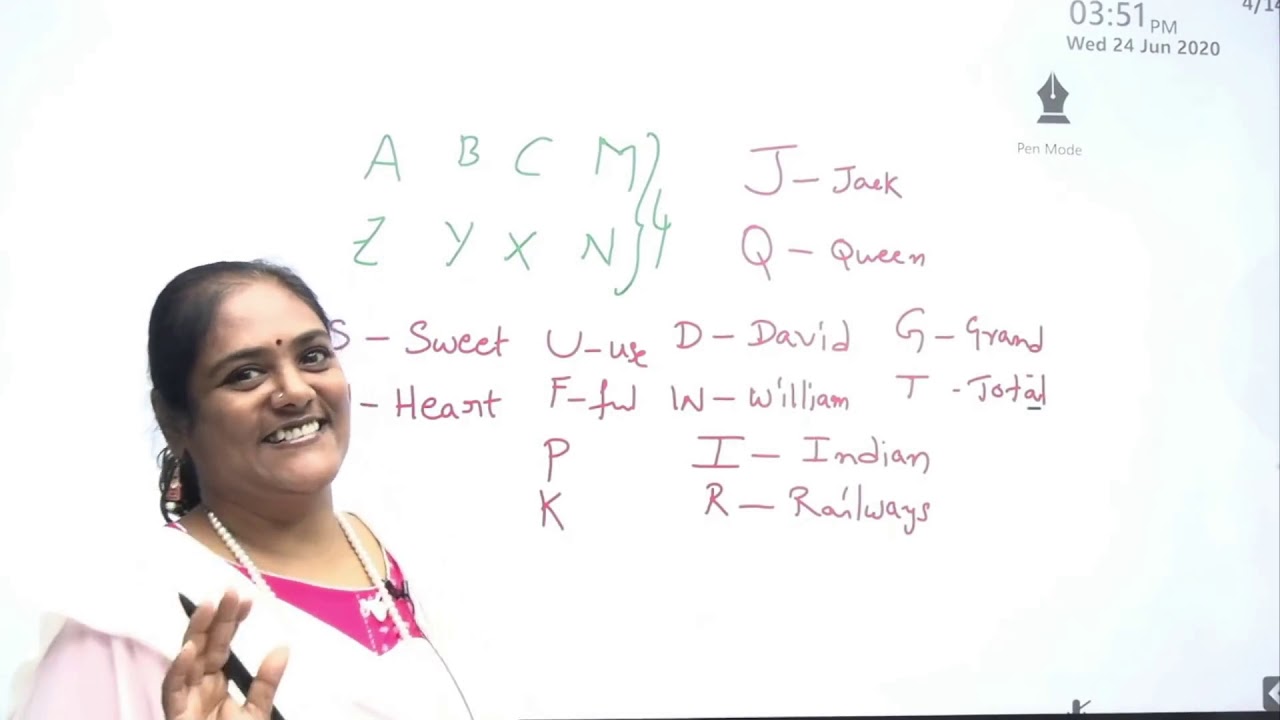 4/14
03:51 PM
Wed 24 Jun 2020
Pen Mode
A B C M } 4
Z Y X N
J - Jack
Q - Queen
S - Sweet U - use D - David G - Grand
- Heart F - ful W - William T - Total
P I - Indian
K R - Railways